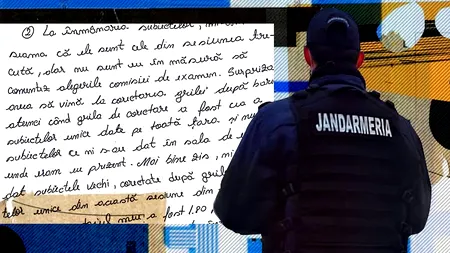 ② La înmânarea subiectelor,
seama că ele sunt cele din sesiunea tre-
cută, dar nu sunt eu în măsură să
comentez alegerile comisiei de examen. Surpriza
mea să vină la corectarea grilei după bare
atunci când grila de corectare a fost cea a
subiectelor unice date pe toată țara și nu
subiectelor ce mi s-au dat în sala de e
unde eram eu prezent. Mai bine zis, mi
dat subiectele vechi, corectate după gril
telor unice din această sesiune din
meu a fost 1.80,
JANDARMERIA